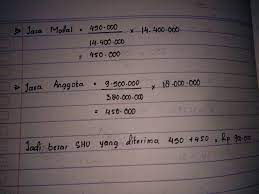 ⇒ Jasa Modal = 450.000 × 14.400.000
14.400.000
= 450.000
⇒ Jasa Anggota = 9.500.000 × 18.000.000
380.000.000
= 450.000
Jadi besar SHU yang diterima 450 + 450 = Rp 900.000